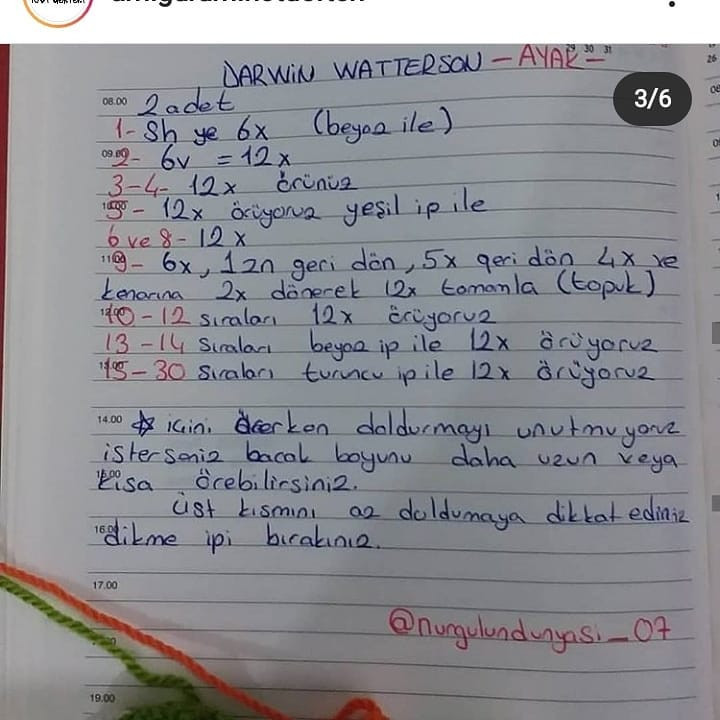 DARWiN WATTERSON - AYAK -
29 30 31
26
3/6
08.00 2 adet
1- Sh ye 6x (beyaz ile)
09.00 2- 6v = 12x
3-4- 12x örünüz
10.00 5- 12x örüyoruz yeşil ip ile
6 ve 8- 12x
11.00 9- 6x, 1zn geri dön, 5x geri dön 4x ve
kenarına 2x dönerek 12x tamamla (topuk)
12.00 10-12 sıraları 12x örüyoruz
13-14 sıraları beyaz ip ile 12x örüyoruz
13.00 15-30 sıraları turuncu ip ile 12x örüyoruz
14.00 ☆ içini örerken doldurmayı unutmuyoruz
isterseniz bacak boyunu daha uzun veya
15.00 kısa örebilirsiniz.
üst kısmını az doldumaya dikkat ediniz
16.00 dikme ipi bırakınız.
17.00
@nurgulundunyasi_07
19.00